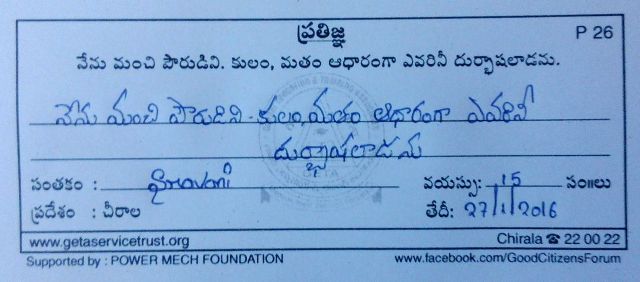 ప్రతిజ్ఞ P 26
నేను మంచి పౌరుడిని. కులం, మతం ఆధారంగా ఎవరినీ దుర్భాషలాడను.
నేను మంచి పౌరుడిని. కులం, మతం ఆధారంగా ఎవరినీ
దుర్భాషలాడను
సంతకం : Sravani వయస్సు: 15 సం॥లు
ప్రదేశం : చీరాల తేదీ: 27/1/2016
www.getaservicetrust.org Chirala ☎ 22 00 22
Supported by : POWER MECH FOUNDATION www.facebook.com/GoodCitizensForum